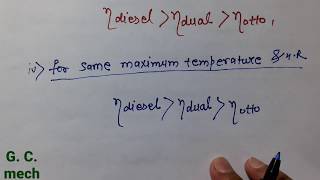 ηdiesel > ηdual > ηotto,
iv) for same maximum temperature & H.R
ηdiesel > ηdual > ηotto
G. C.
mech